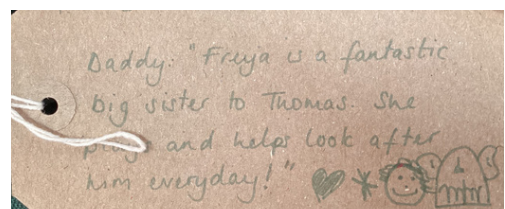 Daddy: "Freyja is a fantastic
big sister to Thomas. She
plays and helps look after
him everyday!"